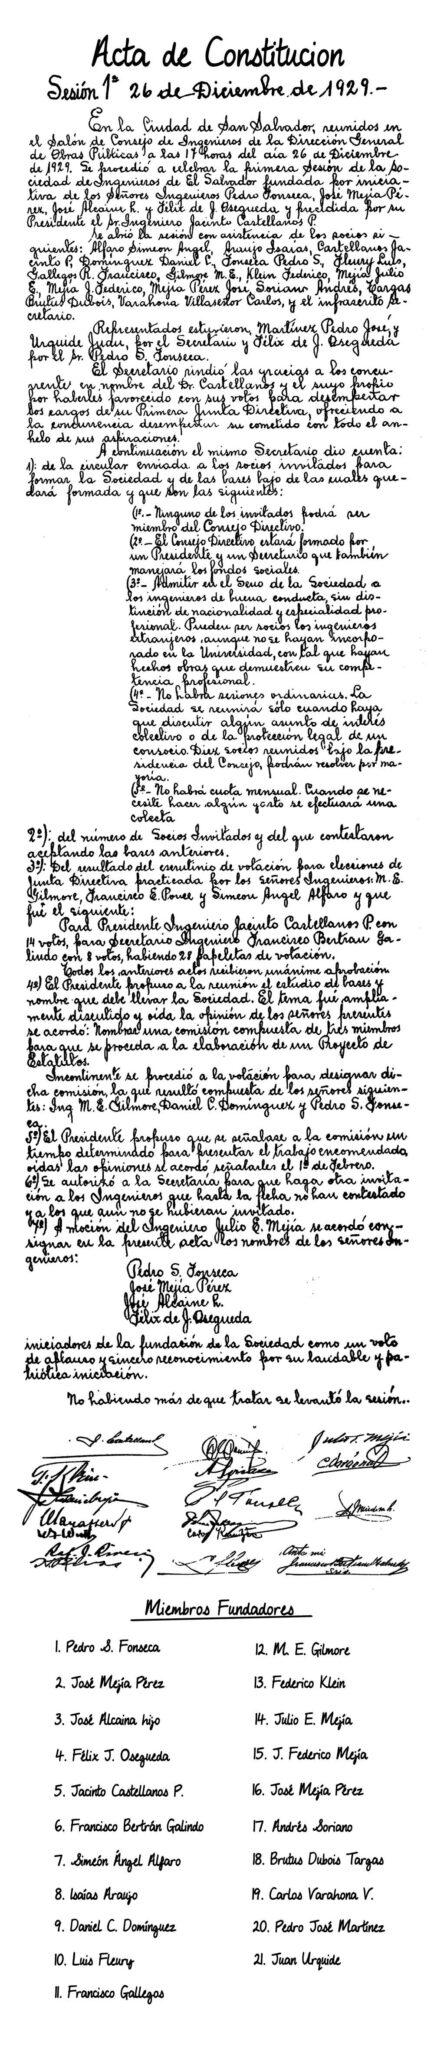 Acta de Constitucion
Sesión 1ª 26 de Diciembre de 1929.-
En la Ciudad de San Salvador, reunidos en
el Salón de Consejo de Ingenieros de la Dirección General
de Obras Públicas a las 17 horas del día 26 de Diciembre
de 1929. Se procedió a celebrar la primera Sesión de la So-
ciedad de Ingenieros de El Salvador fundada por inicia-
tiva de los Señores Ingenieros Pedro Fonseca, José Mejía Pé-
rez, José Alcaine h. y Félix de J. Osegueda y presidida por su
Presidente el Sr. Ingeniero Jacinto Castellanos P.
Se abrió la sesión con asistencia de los socios si-
guientes: Alfaro Simeon Angel, Araujo Isaías, Castellanos Ja-
cinto P, Dominguez Daniel C, Fonseca Pedro S, Fleury Luis,
Gallegos R. Francisco, Gilmore M.E., Klein Federico, Mejía Julio
E. Mejía J. Federico, Mejía Pérez José Soriano Andrés, Vargas
Brutus Dubois, Varahona Villaseñor Carlos, y el infrascrito Se-
cretario.
Representados estuvieron, Martínez Pedro José, y
Urquide Juan, por el Secretario y Félix de J. Osegueda
por el Sr. Pedro S. Fonseca.
El Secretario rindió las gracias a los concu-
rrente en nombre del Sr. Castellanos y el suyo propio
por haberles favorecido con sus votos para desempeñar
los cargos de su Primera Junta Directiva, ofreciendo a
la concurrencia desempeñar su cometido con todo el an-
helo de sus aspiraciones.
A continuación el mismo Secretario dio cuenta:
1): de la circular enviada a los socios invitados para
formar la Sociedad y de las bases bajo de las cuales que-
dará formada y que son las siguientes:
(1ª.- Ninguno de los invitados podrá ser
miembro del Consejo Directivo.
(2ª.- El Consejo Directivo estará formado por
un Presidente y un Secretario que también
manejará los fondos sociales.
(3ª- Admitir en el Seno de la Sociedad a
los ingenieros de buena conducta, sin dis-
tinción de nacionalidad y especialidad pro-
fesional. Pueden ser socios los ingenieros
extranjeros, aunque no se hayan incorpo-
rado en la Universidad, con tal que hayan
hechos obras que demuestren su compe-
tencia profesional.
(4ª- No habrá sesiones ordinarias. La
Sociedad se reunirá sólo cuando haya
que discutir algún asunto de interés
colectivo o de la protección legal de un
consocio. Diez socios reunidos bajo la Pre-
sidencia del Concejo, podrán resolver por ma-
yoría.
(5ª- No habrá cuota mensual. Cuando se ne-
cesite hacer algún gasto se efectuará una
colecta
2ª): del número de Socios Invitados y del que contestaron
aceptando las bases anteriores.
3ª): Del resultado del escrutinio de votación para elecciones de
Junta Directiva practicada por los Señores Ingenieros: M. E.
Gilmore, Francisco E. Ponce y Simeon Angel Alfaro y que
fué el siguiente:
Para Presidente Ingeniero Jacinto Castellanos P. con
14 votos, para Secretario Ingeniero Francisco Bertran Ga-
lindo con 8 votos, habiendo 28 papeletas de votación.
Todos los anteriores actos recibieron unánime aprobación
4ª) El Presidente propuso a la reunión el estudio de bases y
nombre que debe llevar la Sociedad. El tema fué amplia-
mente discutido y oída la opinión de los señores presentes
se acordó: Nombrar una comisión compuesta de tres miembros
para que se proceda a la elaboración de un Proyecto de
Estatutos.
Incontinente se procedió a la votación para designar di-
cha comisión, la que resultó compuesta de los señores siguien-
tes: Ing M. E. Gilmore, Daniel C. Dominguez y Pedro S. Fonse-
ca.
5ª) El Presidente propuso que se señalase a la comisión un
tiempo determinado para presentar el trabajo encomendado,
oídas las opiniones se acordó señalarles el 1º de Febrero.
6ª) Se autorizó a la Secretaría para que haga otra invita-
ción a los Ingenieros que hasta la fecha no han contestado
y a los que aún no se hubieran invitado.
7ª) A moción del Ingeniero Julio E. Mejía se acordó con-
signar en la presente acta los nombres de los señores In-
genieros:
Pedro S. Fonseca
José Mejía Pérez
José Alcaine h.
Félix de J. Osegueda
iniciadores de la fundación de la Sociedad como un voto
de aplauso y sincero reconocimiento por su laudable y pa-
triótica iniciación.
No habiendo más de que tratar se levantó la sesión..
Miembros Fundadores
1. Pedro S. Fonseca
2. José Mejía Pérez
3. José Alcaina hijo
4. Félix J. Osegueda
5. Jacinto Castellanos P.
6. Francisco Bertrán Galindo
7. Simeón Ángel Alfaro
8. Isaías Araujo
9. Daniel C. Domínguez
10. Luis Fleury
11. Francisco Gallegos
12. M. E. Gilmore
13. Federico Klein
14. Julio E. Mejía
15. J. Federico Mejía
16. José Mejía Pérez
17. Andrés Soriano
18. Brutus Dubois Targas
19. Carlos Varahona V.
20. Pedro José Martínez
21. Juan Urquide